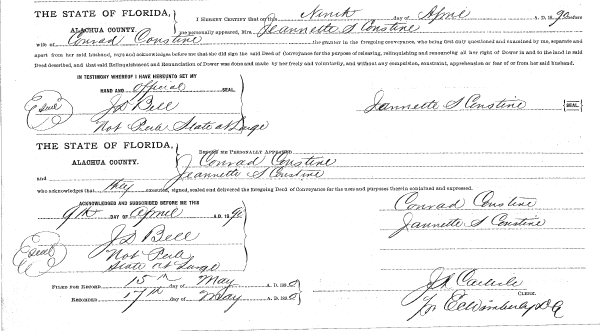 THE STATE OF FLORIDA,
ALACHUA COUNTY.
I HEREBY CERTIFY that on this Ninth day of April A. D. 1890 before
me personally appeared, Mrs. Jeannette S Constine
wife of Conrad Constine the grantor in the foregoing conveyance, who being first duly questioned and examined by me, separate and
apart from her said husband, says and acknowledges before me that she did sign the said Deed of Conveyance for the purpose of releasing, relinquishing and renouncing all her right of Dower in and to the land in said
Deed described, and that said Relinquishment and Renunciation of Dower was done and made by her freely and voluntarily, and without any compulsion, constraint, apprehension or fear of or from her said husband.
IN TESTIMONY WHEREOF I HAVE HEREUNTO SET MY
HAND AND official SEAL.
Seal
J D Bell
Not Pub. State at Large
Jannette S Constine SEAL
THE STATE OF FLORIDA,
ALACHUA COUNTY.
BEFORE ME PERSONALLY APPEARED
Conrad Constine
and Jeannette S Constine
who acknowledges that they executed, signed, sealed and delivered the foregoing Deed of Conveyance for the uses and purposes therein contained and expressed.
ACKNOWLEDGED AND SUBSCRIBED BEFORE ME THIS
9th DAY OF April A.D. 1890
Conrad Constine
Jannette S Constine
Seal
J D Bell
Not Pub
State at Large
FILED FOR RECORD 15th day of May A. D. 1890
RECORDED 17th day of May A. D. 1890
J A Carlisle
CLERK.
Per E C Wimberly D C